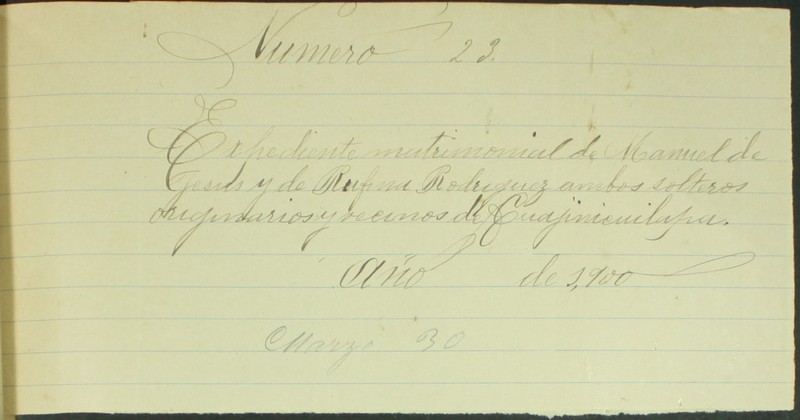 Numero 23.
Expediente matrimonial de Manuel de
Jesus y de Rufina Rodriguez ambos solteros
originarios y vecinos de Cuajinicuilapa.
Año de 1,900
Marzo 30